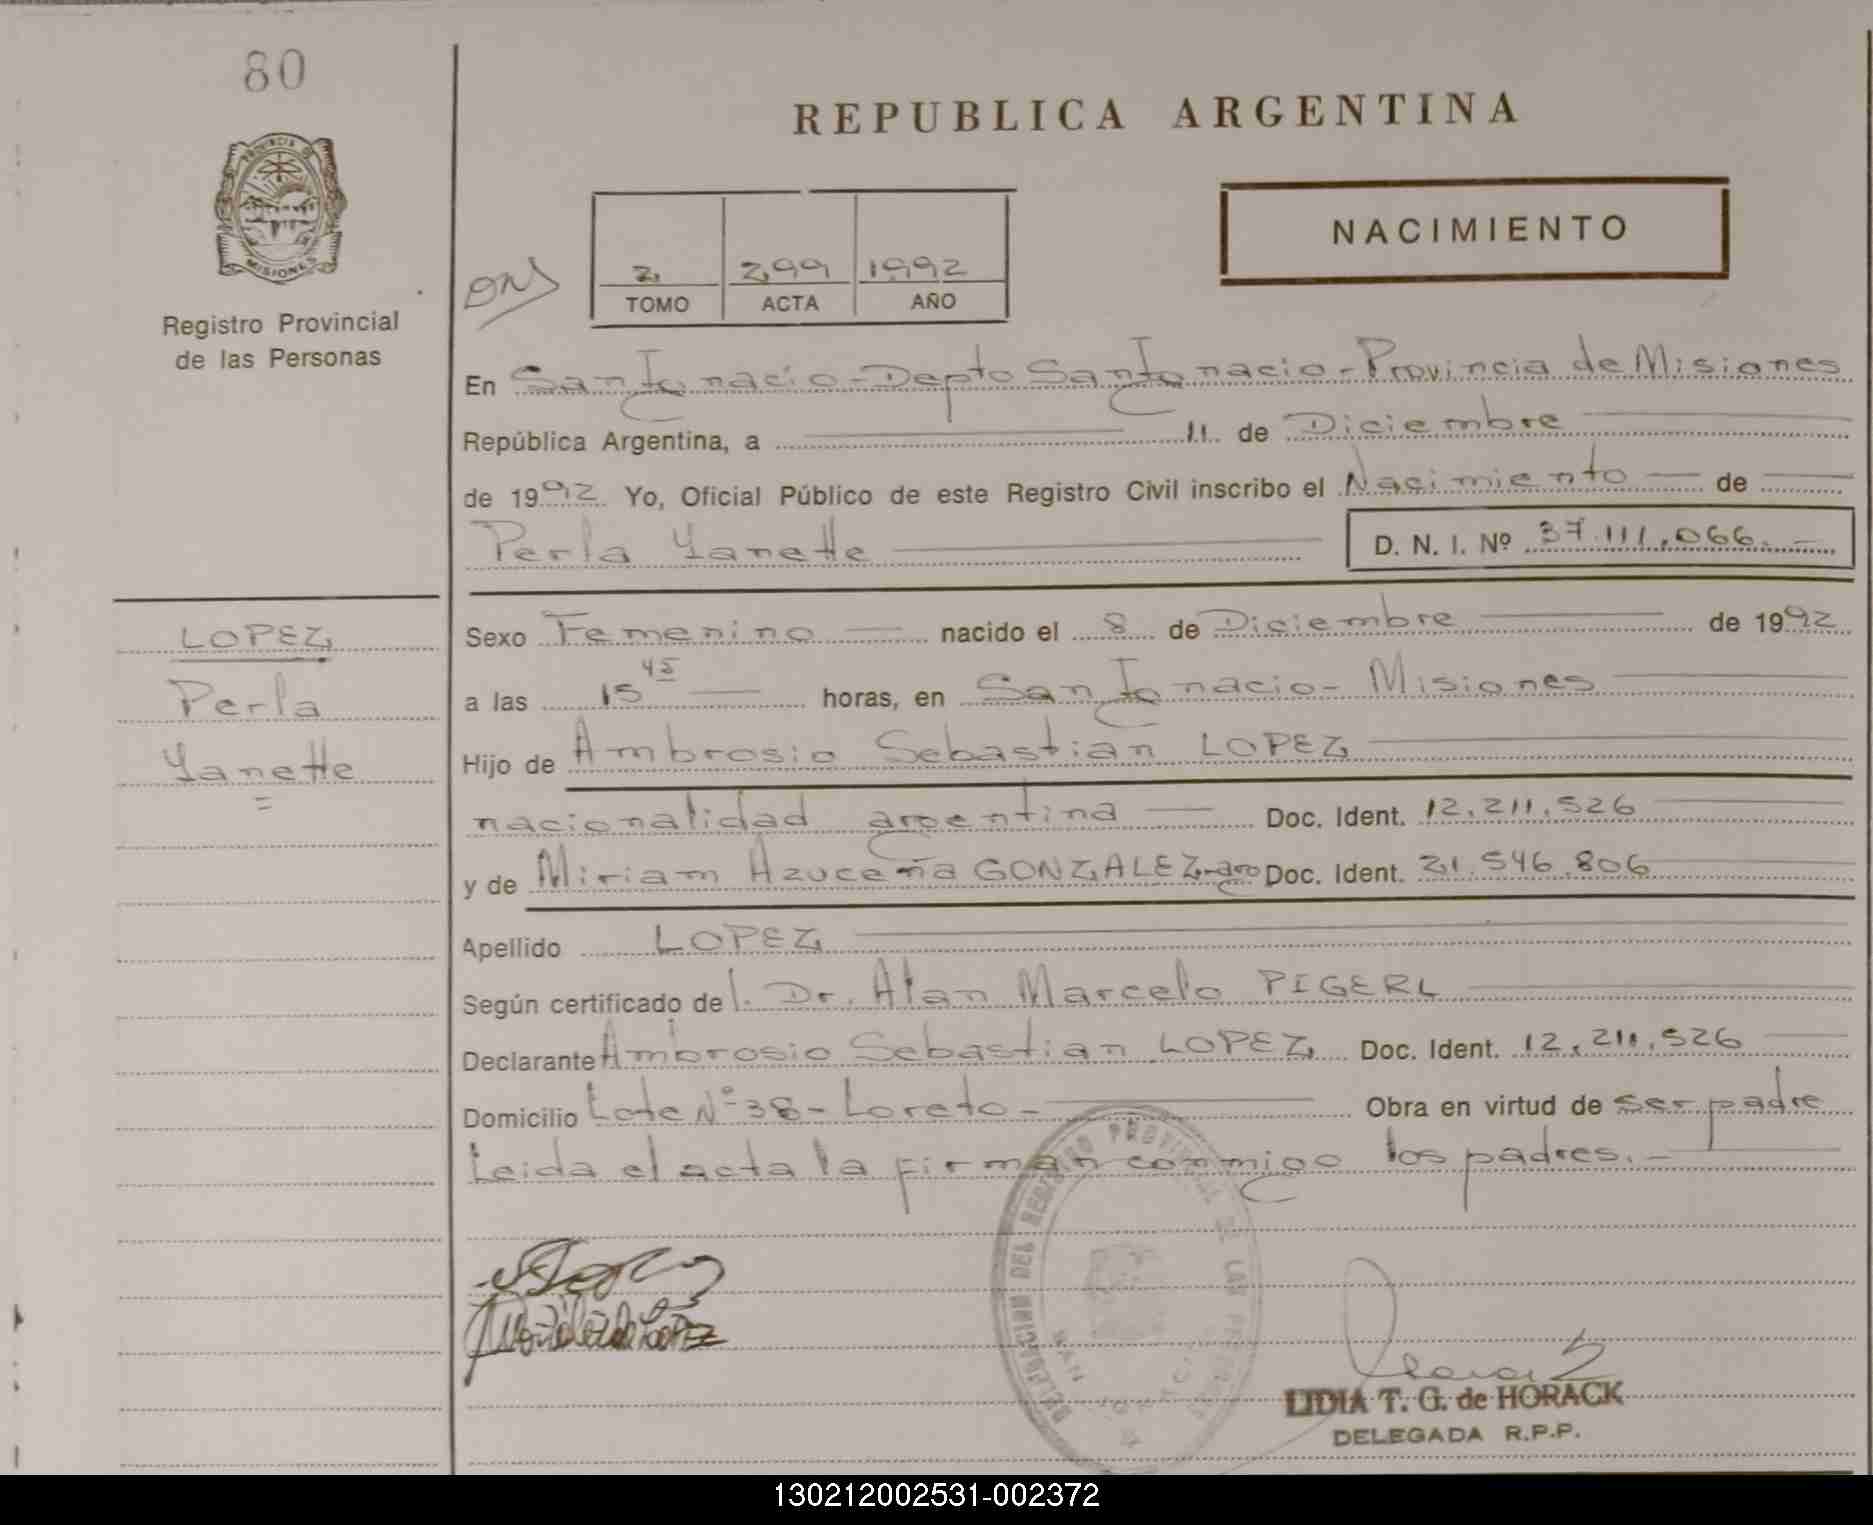 80
PROVINCIA DE
MISIONES
Registro Provincial
de las Personas
REPUBLICA ARGENTINA
NACIMIENTO
DNS
2 299 1992
TOMO ACTA AÑO
En San Ignacio - Depto San Ignacio - Provincia de Misiones
República Argentina, a 11 de Diciembre
de 1992 Yo, Oficial Público de este Registro Civil inscribo el Nacimiento de
Perla Yanette
D. N. I. Nº 37.111.066.-
LOPEZ
Perla
Yanette
=
Sexo Femenino nacido el 8 de Diciembre de 1992
a las 15 45 horas, en San Ignacio - Misiones
Hijo de Ambrosio Sebastian LOPEZ
nacionalidad argentina Doc. Ident. 12.211.526
y de Miriam Azucena GONZALEZ-arg Doc. Ident. 21.546.806
Apellido LOPEZ
Según certificado del Dr. Alan Marcelo PIGERL
Declarante Ambrosio Sebastian LOPEZ Doc. Ident. 12.211.526
Domicilio Lote Nº 38 - Loreto - Obra en virtud de ser padre
Leida el acta la firman conmigo los padres.-
DELEGACION DEL REGISTRO PROVINCIAL DE LAS PERSONAS
SAN IGNACIO
LIDIA T. G. de HORACK
DELEGADA R.P.P.
130212002531-002372